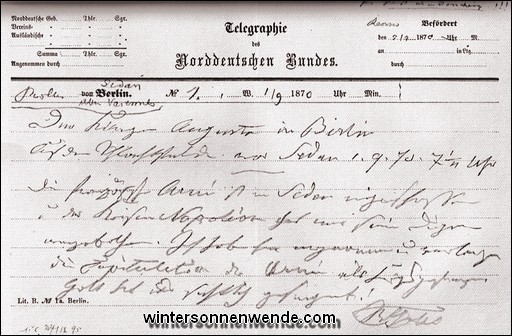 Norddeutsche Geb. Thlr. Sgr.
Vereins-
Ausländische
Summa Thlr. Sgr.
Angenommen durch
Telegraphie
des
Norddeutschen Bundes.
Befördert
den 2/9 1870 Uhr M.
an in Ltg.
durch
Sedan
von Berlin. № 1. W. 1/9 1870 Uhr Min.
über Varennes
Augusta in Berlin
Auf dem Schlachtfelde vor Sedan 1. 9. 70. 7 1/2 Uhr
Die Armee ist in Sedan eingeschlossen
u der Kaiser Napoleon hat mir seinen Degen
angeboten. Ich habe ihn angenommen u verlange
die Capitulation der Armee als Kriegsgefangene
Gott hat sichtlich gesegnet!
Lit. B. № 1a. Berlin.
wintersonnenwende.com